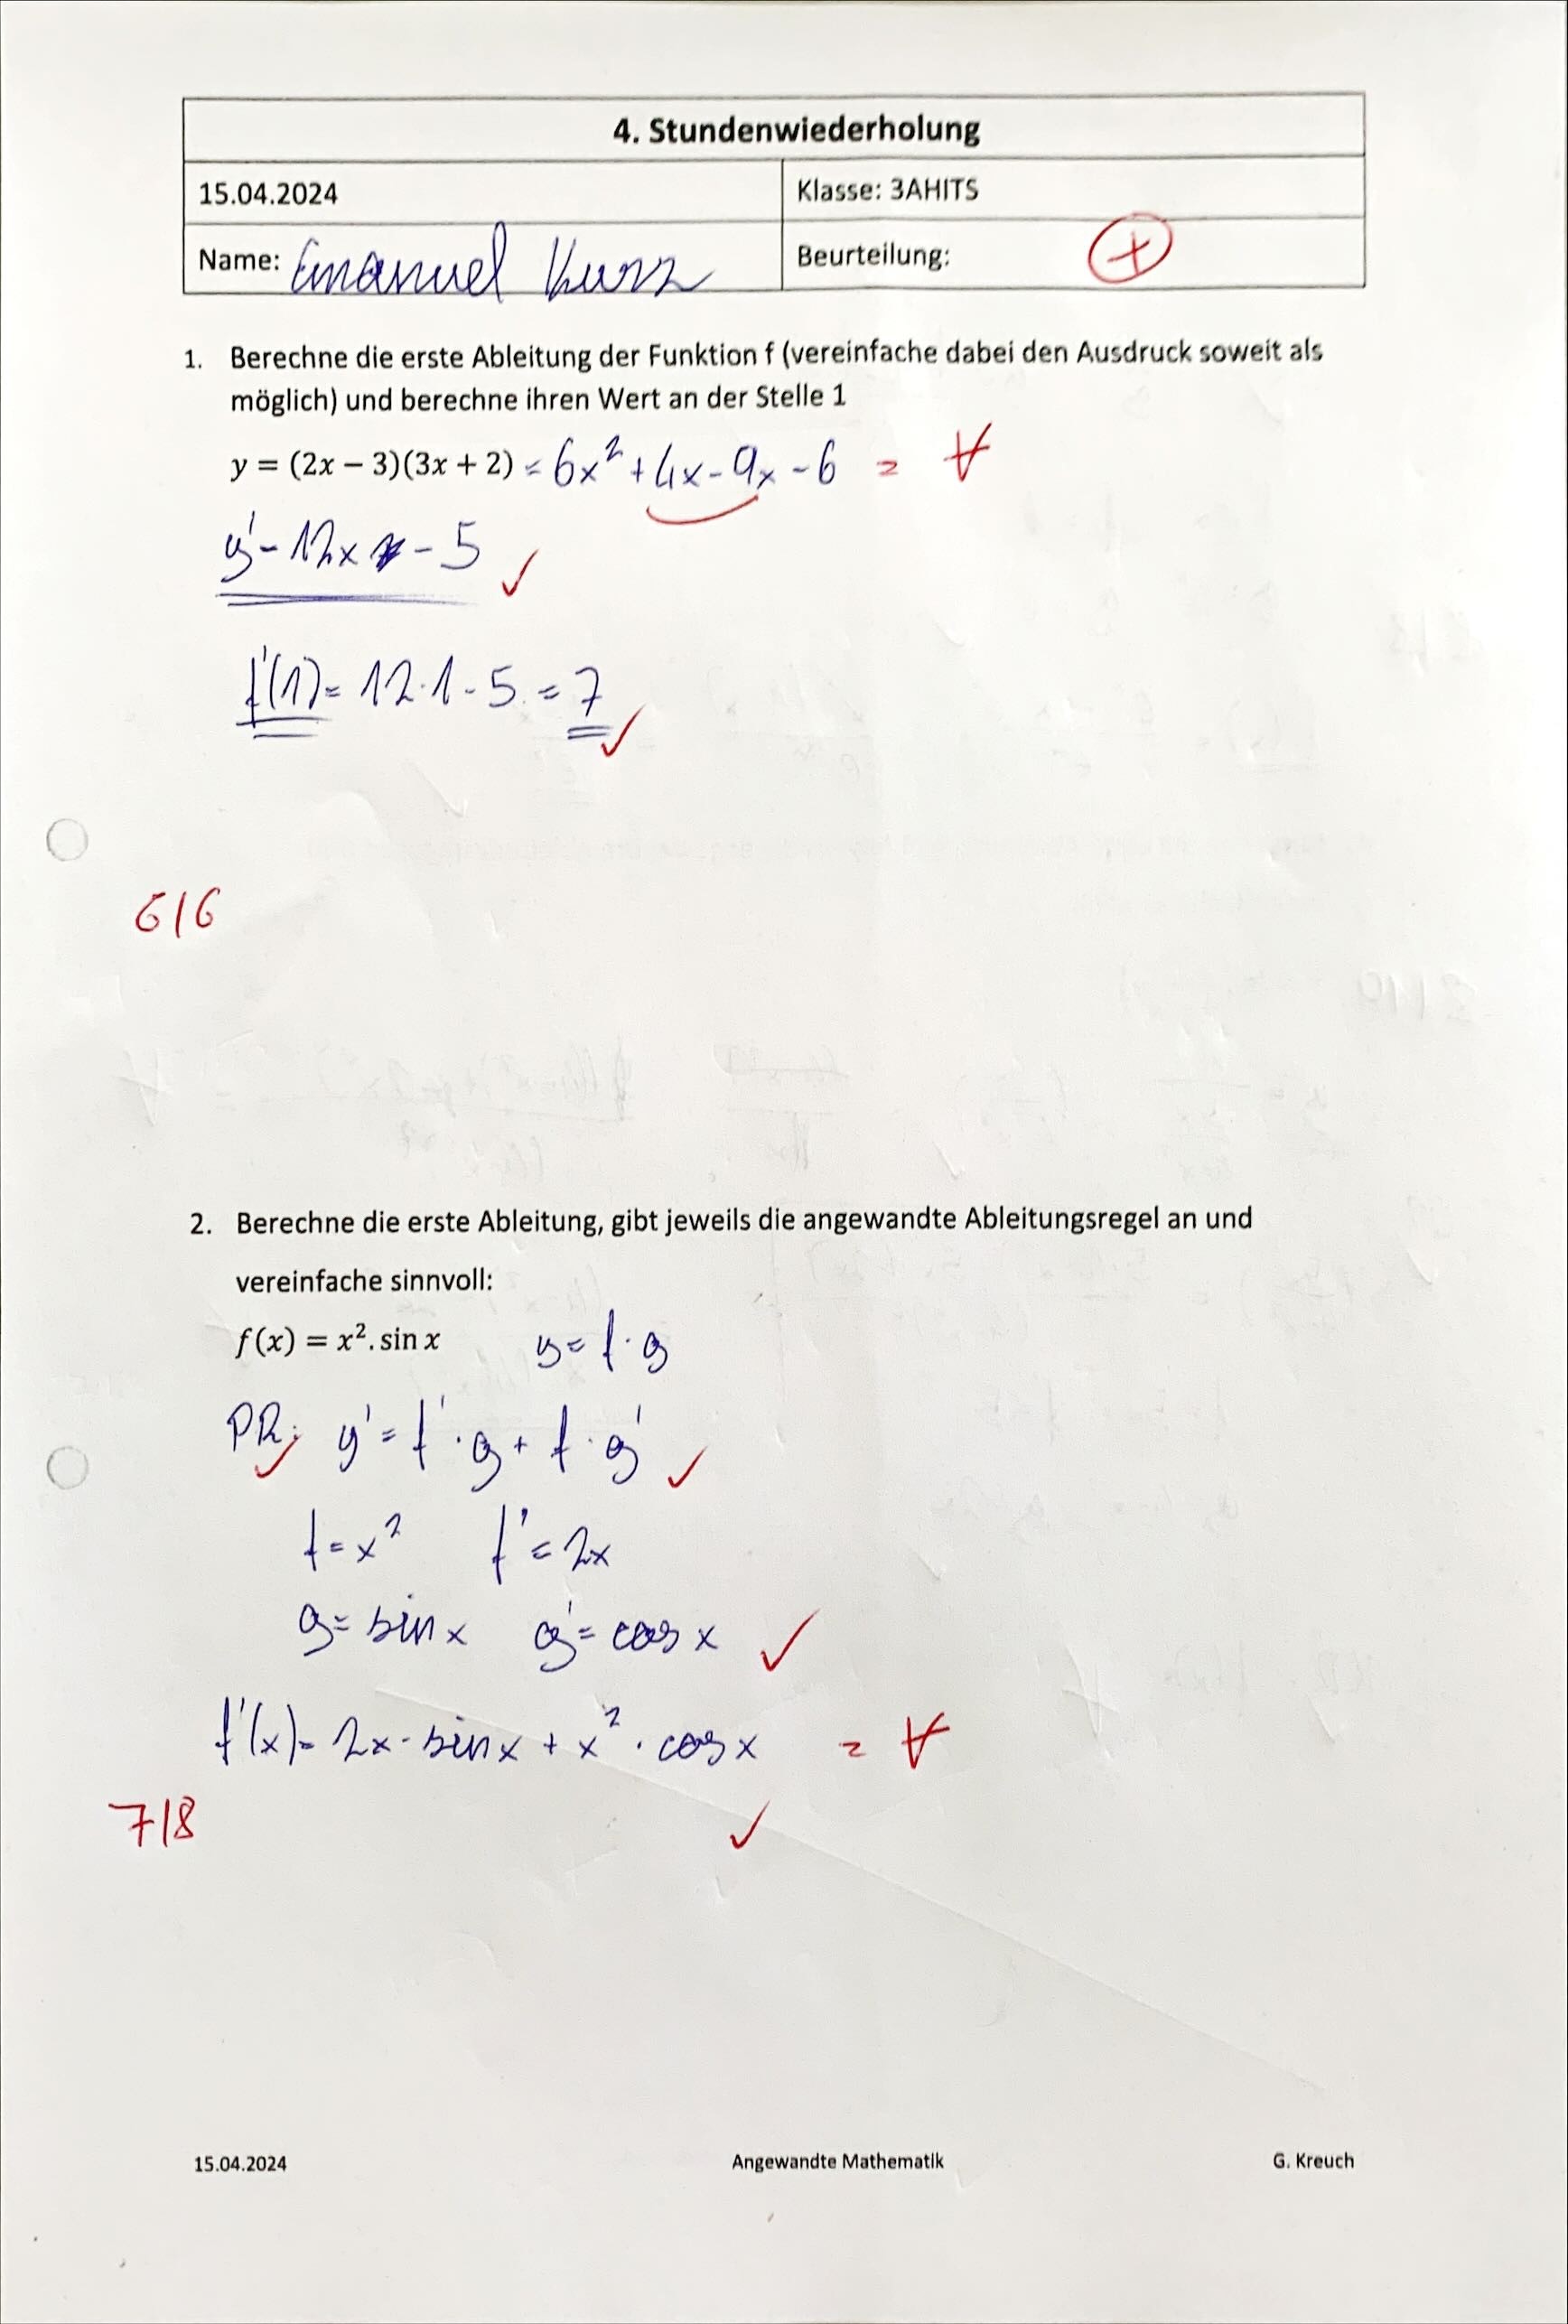 4. Stundenwiederholung
15.04.2024 Klasse: 3AHITS
Name: Emanuel Kurz Beurteilung: +
1. Berechne die erste Ableitung der Funktion f (vereinfache dabei den Ausdruck soweit als
möglich) und berechne ihren Wert an der Stelle 1
y = (2x − 3)(3x + 2) = 6x² + 4x - 9x - 6 = ∀
y' = 12x - 5 ✓
f'(1) = 12·1 - 5 = 7 ✓
6/6
2. Berechne die erste Ableitung, gibt jeweils die angewandte Ableitungsregel an und
vereinfache sinnvoll:
f(x) = x². sin x y = f · g
PR: y' = f' · g + f · g' ✓
f = x² f' = 2x
g = sin x g' = cos x ✓
f'(x) = 2x · sin x + x² · cos x = ∀
7/8 ✓
15.04.2024 Angewandte Mathematik G. Kreuch